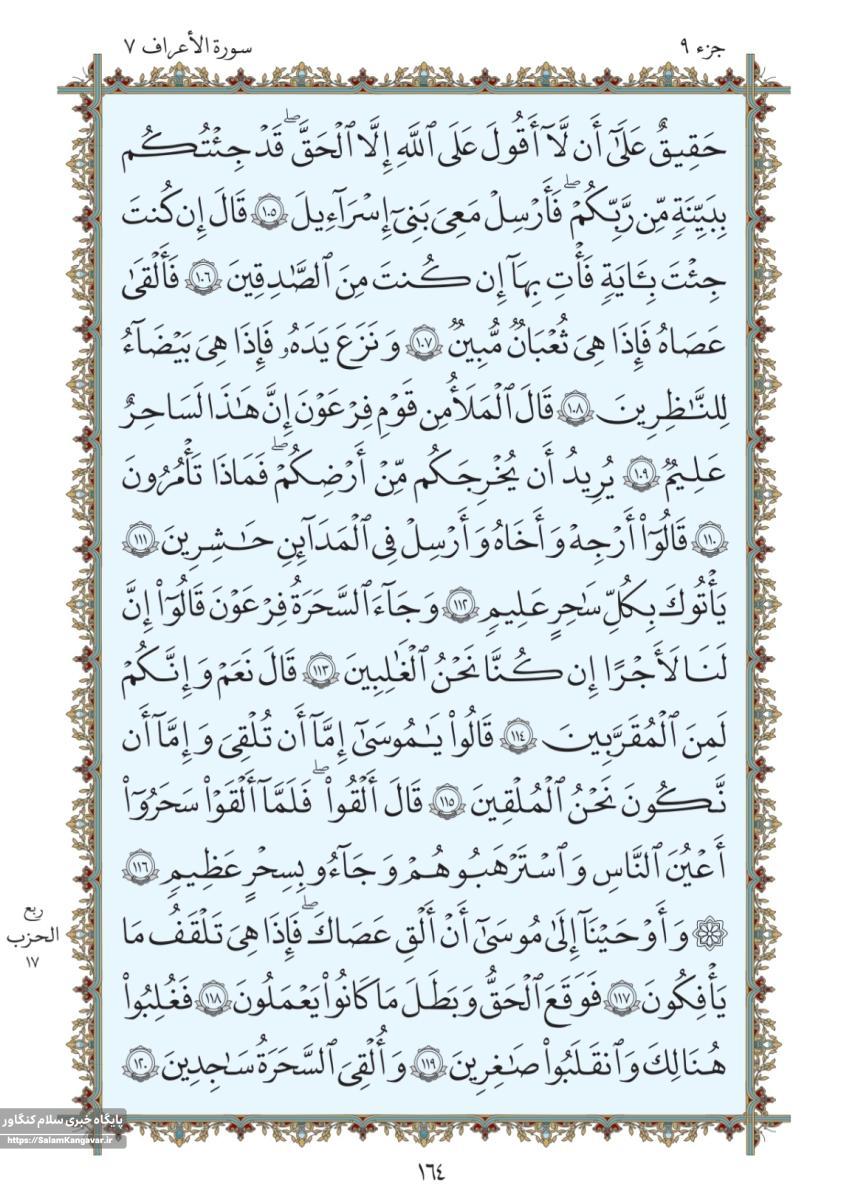 جزء ٩
سورة الأعراف ٧
حَقِيقٌ عَلَىٰٓ أَن لَّآ أَقُولَ عَلَى ٱللَّهِ إِلَّا ٱلْحَقَّۖ قَدْ جِئْتُكُم
بِبَيِّنَةٍ مِّن رَّبِّكُمْۖ فَأَرْسِلْ مَعِىَ بَنِىٓ إِسْرَآءِيلَ ١٠٥ قَالَ إِن كُنتَ
جِئْتَ بِـَٔايَةٍ فَأْتِ بِهَآ إِن كُنتَ مِنَ ٱلصَّـٰدِقِينَ ١٠٦ فَأَلْقَىٰ
عَصَاهُ فَإِذَا هِىَ ثُعْبَانٌ مُّبِينٌ ١٠٧ وَ نَزَعَ يَدَهُۥ فَإِذَا هِىَ بَيْضَآءُ
لِلنَّـٰظِرِينَ ١٠٨ قَالَ ٱلْمَلَأُ مِن قَوْمِ فِرْعَوْنَ إِنَّ هَـٰذَا لَسَاحِرٌ
عَلِيمٌ ١٠٩ يُرِيدُ أَن يُخْرِجَكُم مِّنْ أَرْضِكُمْۖ فَمَاذَا تَأْمُرُونَ
١١٠ قَالُوٓا۟ أَرْجِهْ وَ أَخَاهُ وَ أَرْسِلْ فِى ٱلْمَدَآئِنِ حَـٰشِرِينَ ١١١
يَأْتُوكَ بِكُلِّ سَـٰحِرٍ عَلِيمٍ ١١٢ وَ جَآءَ ٱلسَّحَرَةُ فِرْعَوْنَ قَالُوٓا۟ إِنَّ
لَنَا لَأَجْرًا إِن كُنَّا نَحْنُ ٱلْغَـٰلِبِينَ ١١٣ قَالَ نَعَمْ وَ إِنَّكُمْ
لَمِنَ ٱلْمُقَرَّبِينَ ١١٤ قَالُوا۟ يَـٰمُوسَىٰٓ إِمَّآ أَن تُلْقِىَ وَ إِمَّآ أَن
نَّكُونَ نَحْنُ ٱلْمُلْقِينَ ١١٥ قَالَ أَلْقُوا۟ۖ فَلَمَّآ أَلْقَوْا۟ سَحَرُوٓا۟
أَعْيُنَ ٱلنَّاسِ وَ ٱسْتَرْهَبُوهُمْ وَ جَآءُو بِسِحْرٍ عَظِيمٍ ١١٦
۞ وَ أَوْحَيْنَآ إِلَىٰ مُوسَىٰٓ أَنْ أَلْقِ عَصَاكَۖ فَإِذَا هِىَ تَلْقَفُ مَا
يَأْفِكُونَ ١١٧ فَوَقَعَ ٱلْحَقُّ وَ بَطَلَ مَا كَانُوا۟ يَعْمَلُونَ ١١٨ فَغُلِبُوا۟
هُنَالِكَ وَ ٱنقَلَبُوا۟ صَـٰغِرِينَ ١١٩ وَ أُلْقِىَ ٱلسَّحَرَةُ سَـٰجِدِينَ ١٢٠
ربع
الحزب
١٧
پایگاه خبری سلام کنگاور
https://SalamKangavar.ir
١٦٤